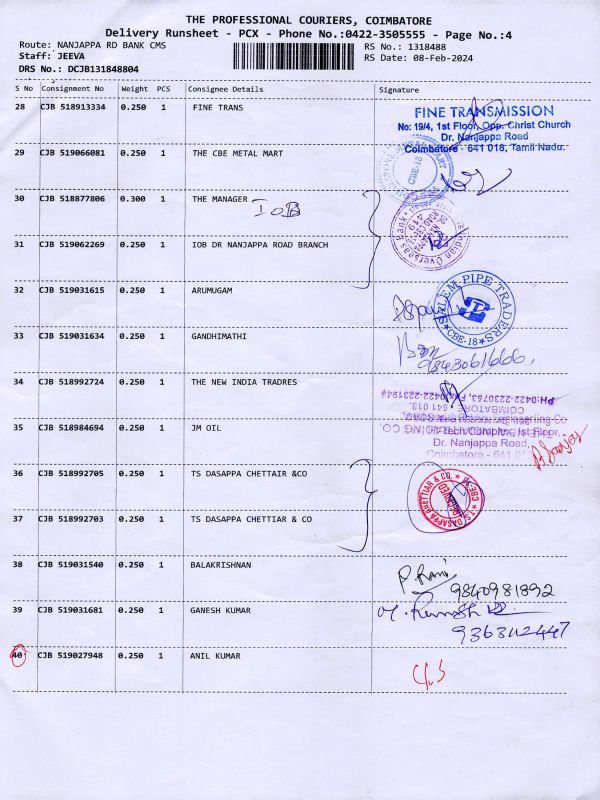 THE PROFESSIONAL COURIERS, COIMBATORE
Delivery Runsheet - PCX - Phone No.:0422-3505555 - Page No.:4
Route: NANJAPPA RD BANK CMS RS No.: 1318488
Staff: JEEVA RS Date: 08-Feb-2024
DRS No.: DCJB131848804
S No Consignment No Weight PCS Consignee Details Signature
28 CJB 518913334 0.250 1 FINE TRANS
FINE TRANSMISSION
No: 19/4, 1st Floor, Opp. Christ Church
Dr. Nanjappa Road
Coimbatore - 641 018, Tamil Nadu.
29 CJB 519066081 0.250 1 THE CBE METAL MART
CBE-18
30 CJB 518877806 0.300 1 THE MANAGER IOB
Indian Overseas Bank
31 CJB 519062269 0.250 1 IOB DR NANJAPPA ROAD BRANCH
32 CJB 519031615 0.250 1 ARUMUGAM
SALEM PIPE TRADERS
CBE-18
33 CJB 519031634 0.250 1 GANDHIMATHI
9843061666,
34 CJB 518992724 0.250 1 THE NEW INDIA TRADRES
COIMBATORE 641 018.
35 CJB 518984694 0.250 1 JM OIL
Hi-Tech Complex, Ist Floor,
Dr. Nanjappa Road,
Coimbatore - 641 018
36 CJB 518992705 0.250 1 TS DASAPPA CHETTAIR &CO
T.S. DASAPPA CHETTIAR & CO. CBE-18
RECEIVED
37 CJB 518992703 0.250 1 TS DASAPPA CHETTIAR & CO
38 CJB 519031540 0.250 1 BALAKRISHNAN
9840981892
39 CJB 519031681 0.250 1 GANESH KUMAR
9363112447
40 CJB 519027948 0.250 1 ANIL KUMAR